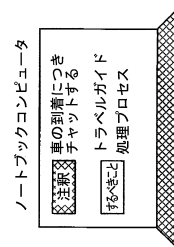 ノートブックコンピュータ
注釈
車の到着につき
チャットする
するべきこと
トラベルガイド
処理プロセス